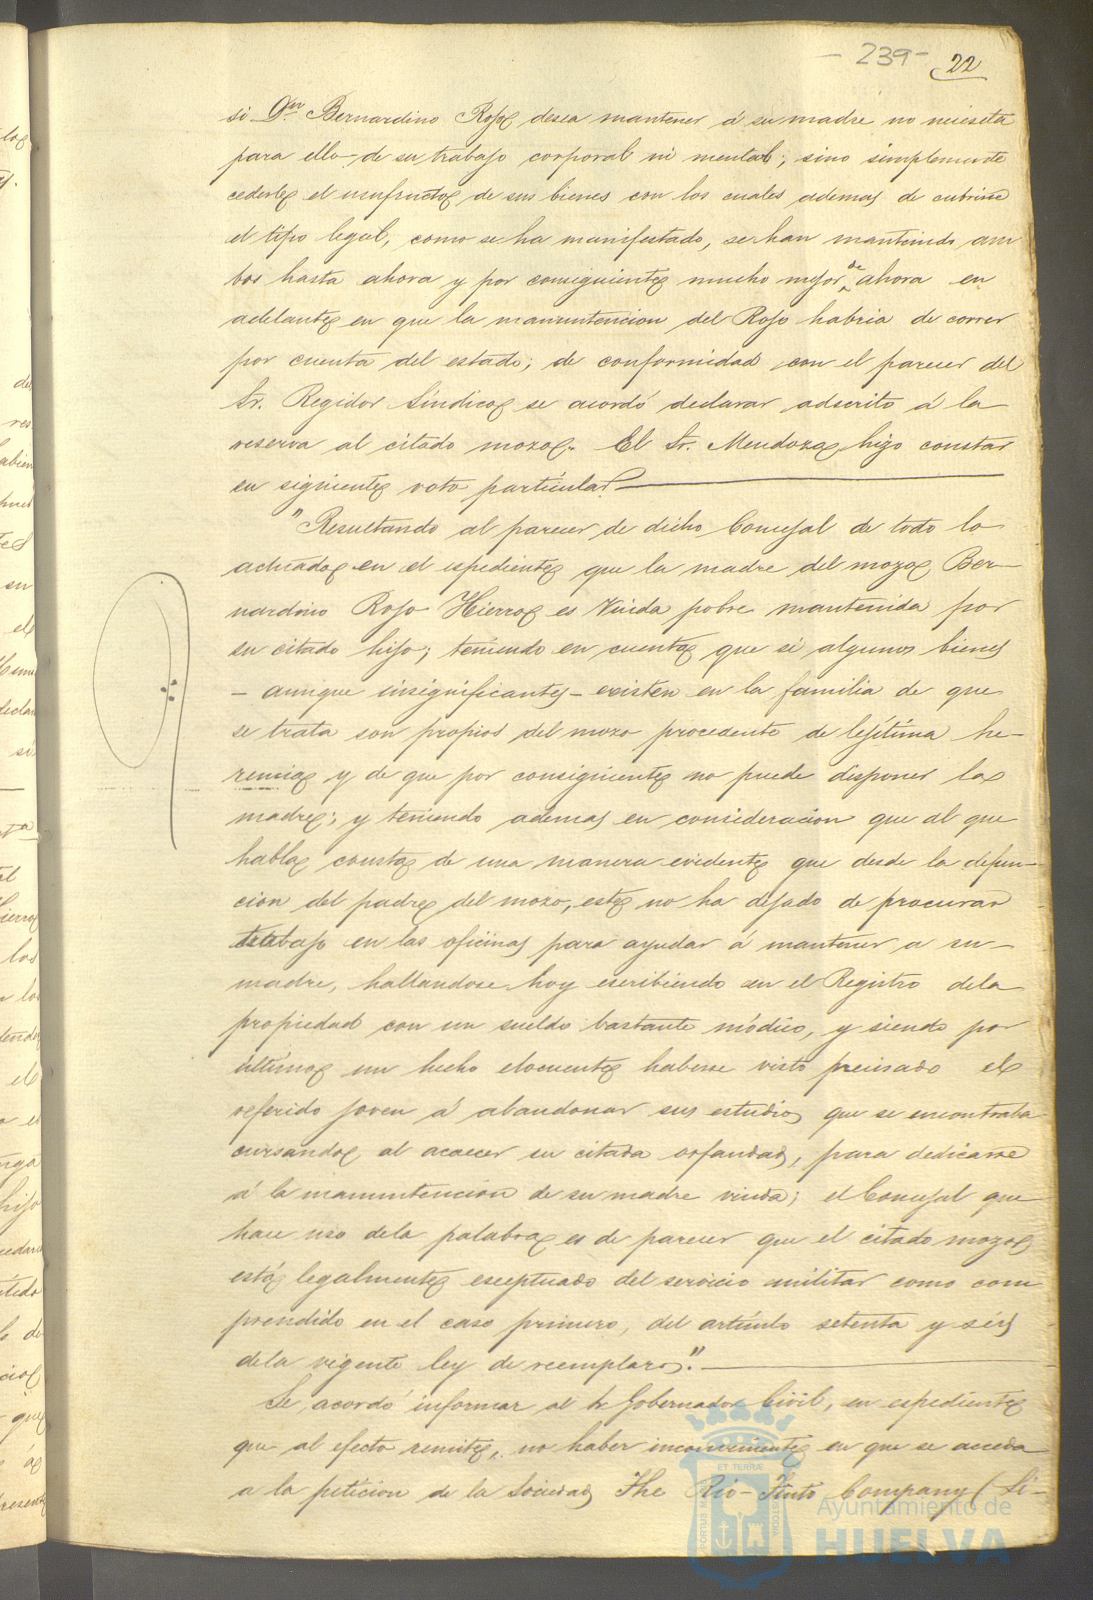 - 239 - 22
si Dn. Bernardino Rojo desea mantener á su madre no necesita
para ello de su trabajo corporal ni mental; sino simplemente
cederle el usufructo de sus bienes con los cuales ademas de cubrirse
el tipo legal, como se ha manifestado, se han mantenido am
bos hasta ahora y por consiguiente mucho mejor de ahora en
adelante en que la manuntencion del Rojo habria de correr
por cuenta del estado; de conformidad con el parecer del
Sr. Regidor Síndico se acordó declarar adscrito á la
reserva al citado mozo. El Sr. Mendoza hizo constar
su siguiente voto particular
"Resultando al parecer de dicho Concejal de todo lo
actuado en el espediente que la madre del mozo Ber-
nardino Rojo Hierro es Viuda pobre mantenida por
su citado hijo; teniendo en cuenta que si algunos bienes
- aunque insignificantes - existen en la familia de que
se trata son propios del mozo procedente de legítima he-
rencia y de que por consiguiente no puede disponer la
madre; y teniendo ademas en consideracion que al que
habla consta de una manera evidente que desde la defun-
cion del padre del mozo, este no ha dejado de procurar
trabajo en las oficinas para ayudar á mantener a su
madre, hallandose hoy escribiendo en el Registro dela
propiedad con un sueldo bastante módico, y siendo por
último un hecho elocuente haberse visto precisado el
referido joven á abandonar sus estudios que se encontraba
cursando al acaecer su citada orfandad, para dedicarse
á la manuntencion de su madre viuda; el Concejal que
hace uso dela palabra es de parecer que el citado mozo
está legalmente esceptuado del servicio militar como com
prendido en el caso primero, del artículo setenta y séis
dela vigente ley de reemplazos."
Se acordó informar al Sr Gobernador Civil, en espediente
que al efecto remite, no haber inconveniente en que se acceda
a la peticion de la Sociedad The Rio-Tinto Company (Li-
ET TERRÆ
PORTUS MA
STODIA
Ayuntamiento de
HUELVA